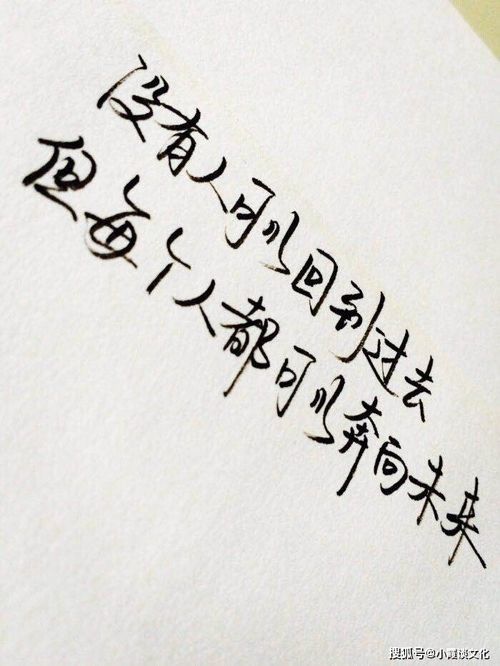 没有人可以回到过去
但每个人都可以奔向未来
搜狐号@小霞谈文化